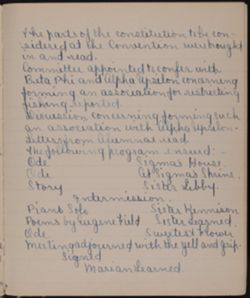 & the parts of the constitution to be con-
sidered at the Convention were brought
in and read.
Committee appointed to confer with
Beta Phi and Alpha Upsilon concerning
forming an association for restricting
fishing reported.
Discussion concerning forming such
an association with Alpha Upsilon.
Letters from alumnae read
The following program ensued:-
Ode Sigma's House.
Ode At Sigma's Shrine.
Story Sister Libby.
Intermission.
Piano Solo Sister Kennison
Poems by Eugene Field Sister Learned
Ode Sweetest Flower
Meeting adjourned with the yell and grip.
Signed
Marian Learned.